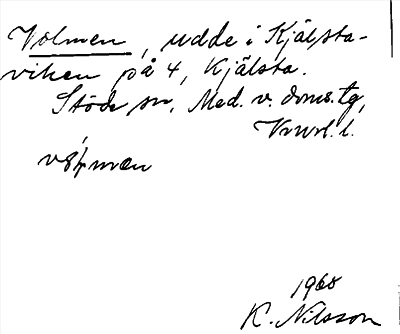 Volmen, udde i Kjälsta-
viken på 4, Kjälsta.
Stöde sn, Med. v. doms.tg,
Vnrl. l.
1968
K. Nilsson